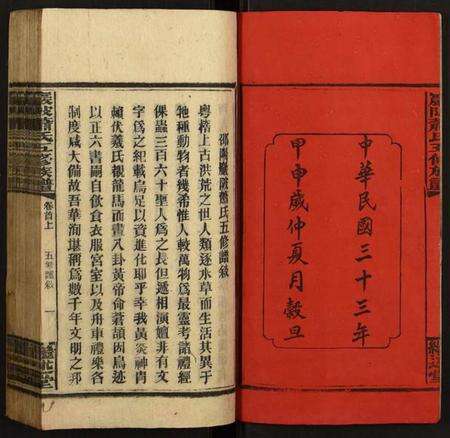 中華民國三十三年
甲申歲仲夏月穀旦
五修譜敘
粵稽上古洪荒之世人類逐水草而生活其異于
牠種動物者幾希惟人較萬物爲最靈考諸禮經
倮蟲三百六十聖人爲之長但遞相演嬗非有文
字爲之紀載烏足以資進化耶乎幸我黃炎神冑
賴伏羲氏觀龍馬而畫八卦黃帝命蒼頡因鳥迹
以正六書嗣自飲食衣服宮室以及舟車禮樂各
制度咸大備故吾華洵堪稱爲數千年文明之邦
氏五修族譜
卷首上
五修譜敘
一